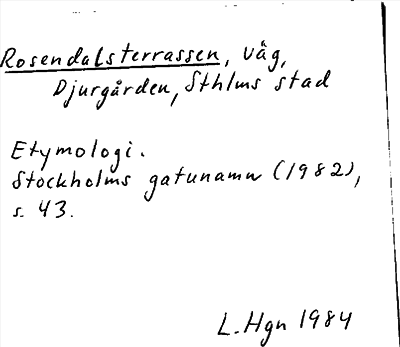 Rosendalsterrassen, väg,
Djurgården, Sthlms stad
Etymologi.
Stockholms gatunamn (1982),
s. 43.
L. Hgn 1984